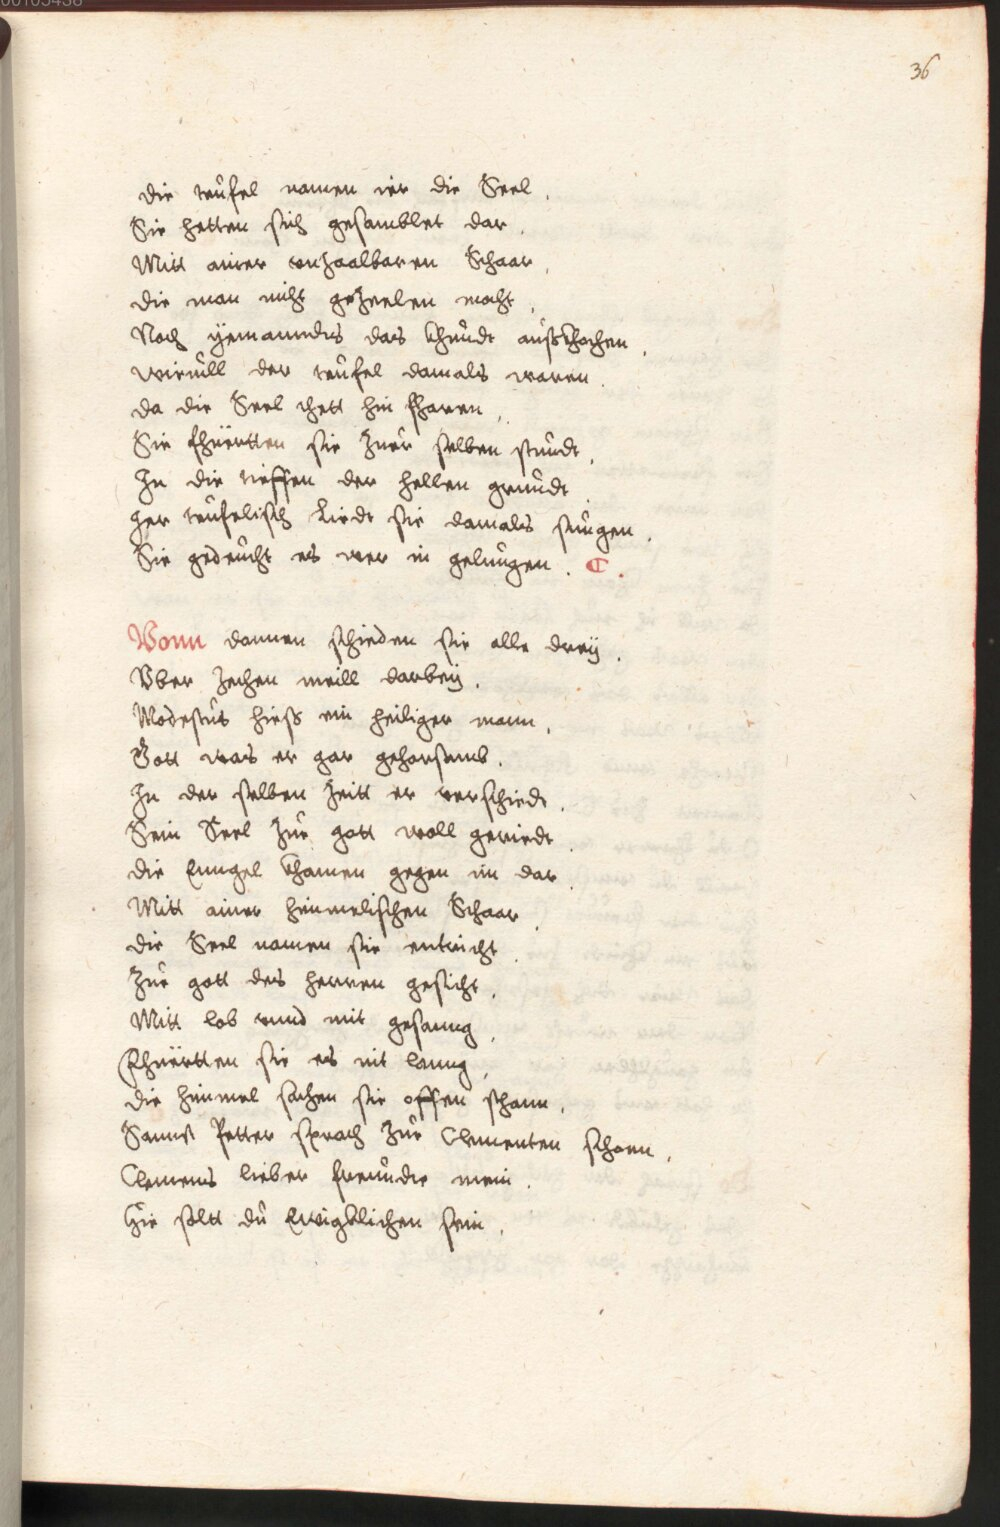 00105438
36
die teufel namen ier die Seel .
Sie hetten sich gesamblet dar .
Mitt ainer vnzaalbaren Schaar .
die man nicht gezeelen macht .
Noch yemanndts das khundt außkhochen .
wieuill der teufel damals waren .
da die Seel thett hin fharen .
Sie fhuertten sie zuer selben stundt .
In die tieffen der hellen grundt .
Her teufelisch Liedt sie damals sungen .
Sie gedeucht es wer in gelungen .
Vonn dannen schieden sie alle drey .
Vber zechen meill darbey .
Modestus hiess ein heiliger mann .
Gott was er gar gehorsamb .
In der selben Zeitt er verschiedt .
Sein Seel zue gott woll geriedt .
die Enngel khamen gegen im dar .
Mitt ainer himmelischen Schaar .
die Seel namen sie entricht .
Zue gott des herren gesicht .
Mitt lob vnnd mit gesanng .
Fhuertten sie es nit lanng .
die himmel sachen sie offen schann .
Sannt Petter sprach zue Clementen schoen .
Clemens lieber freundte mein .
Hie soltt du Ewigklichen sein .